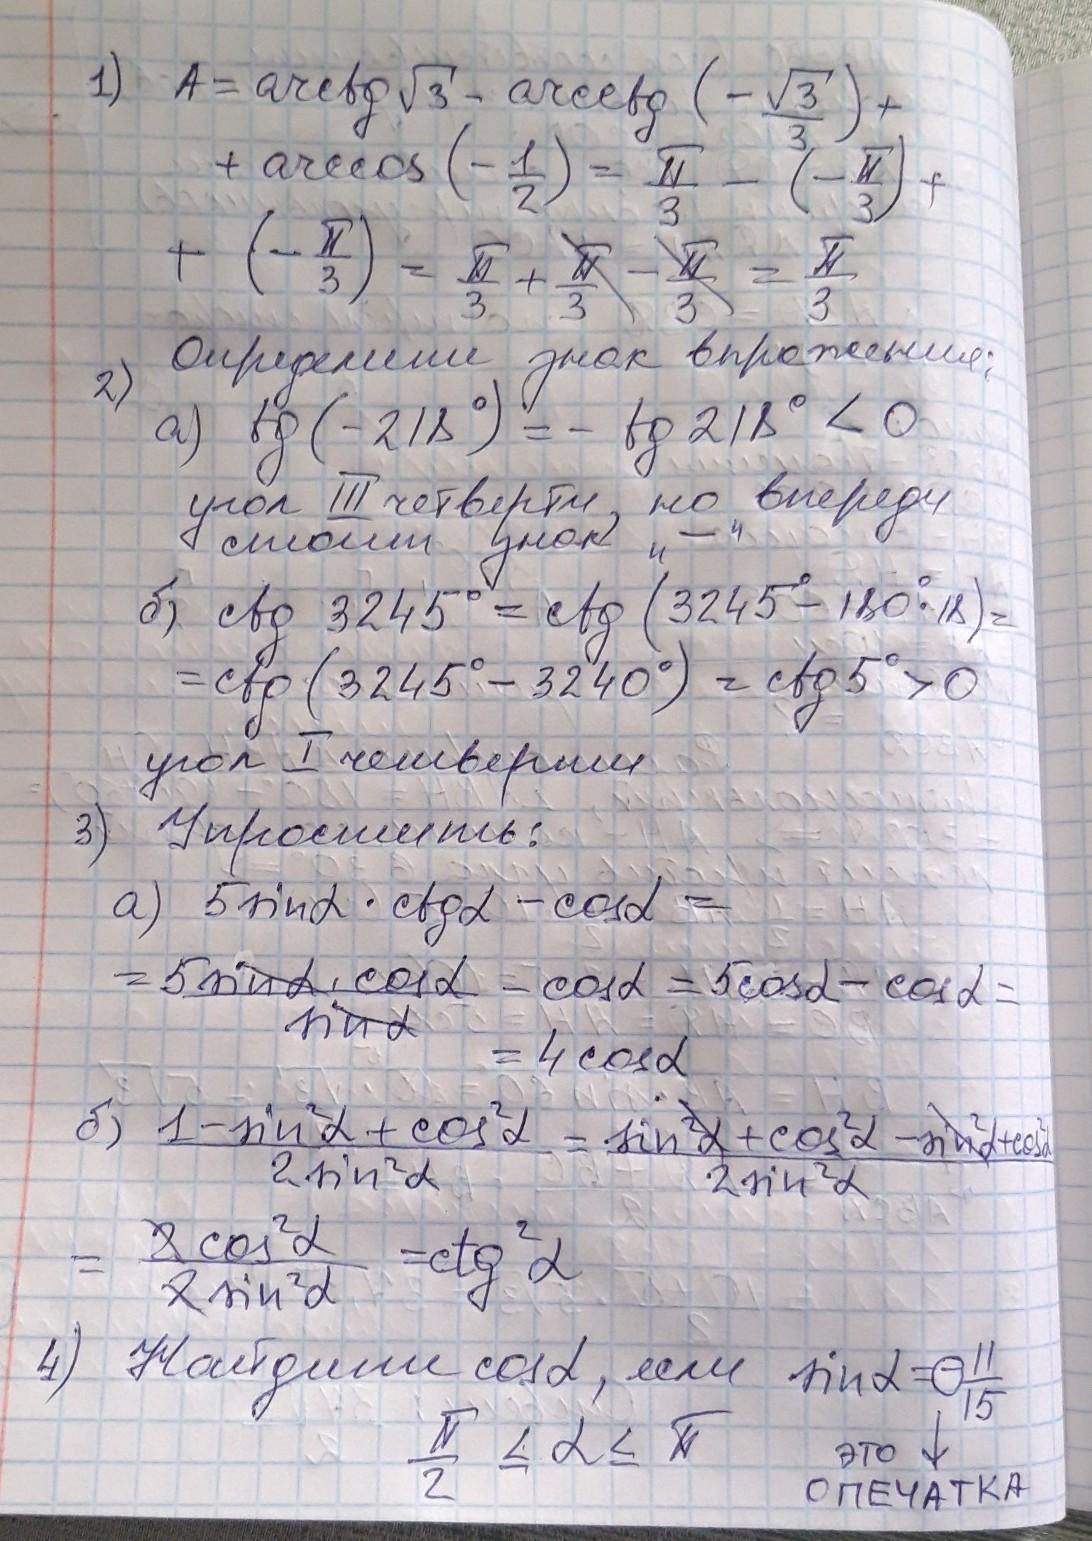 1) A = arctg √3 - arcctg (-√3/3) +
+ arccos (-1/2) = π/3 - (-π/3) +
+ (-π/3) = π/3 + π/3 - π/3 = π/3
2) Определить знак выражения:
а) tg (-218°) = - tg 218° < 0
угол III четверти, но впереди
стоит знак „-“
б) ctg 3245° = ctg (3245° - 180°·18) =
= ctg (3245° - 3240°) = ctg 5° > 0
угол I четверти
3) Упростить:
а) 5 sin α · ctg α - cos α =
= 5 sin α · cos α / sin α - cos α = 5 cos α - cos α =
= 4 cos α
б) 1 - sin²α + cos²α / 2 sin²α = sin²α + cos²α - sin²α + cos²α / 2 sin²α
= 2 cos²α / 2 sin²α = ctg²α
4) Найдите cos α, если sin α = - 11/15
π/2 ≤ α ≤ π
ЭТО ↓
ОПЕЧАТКА